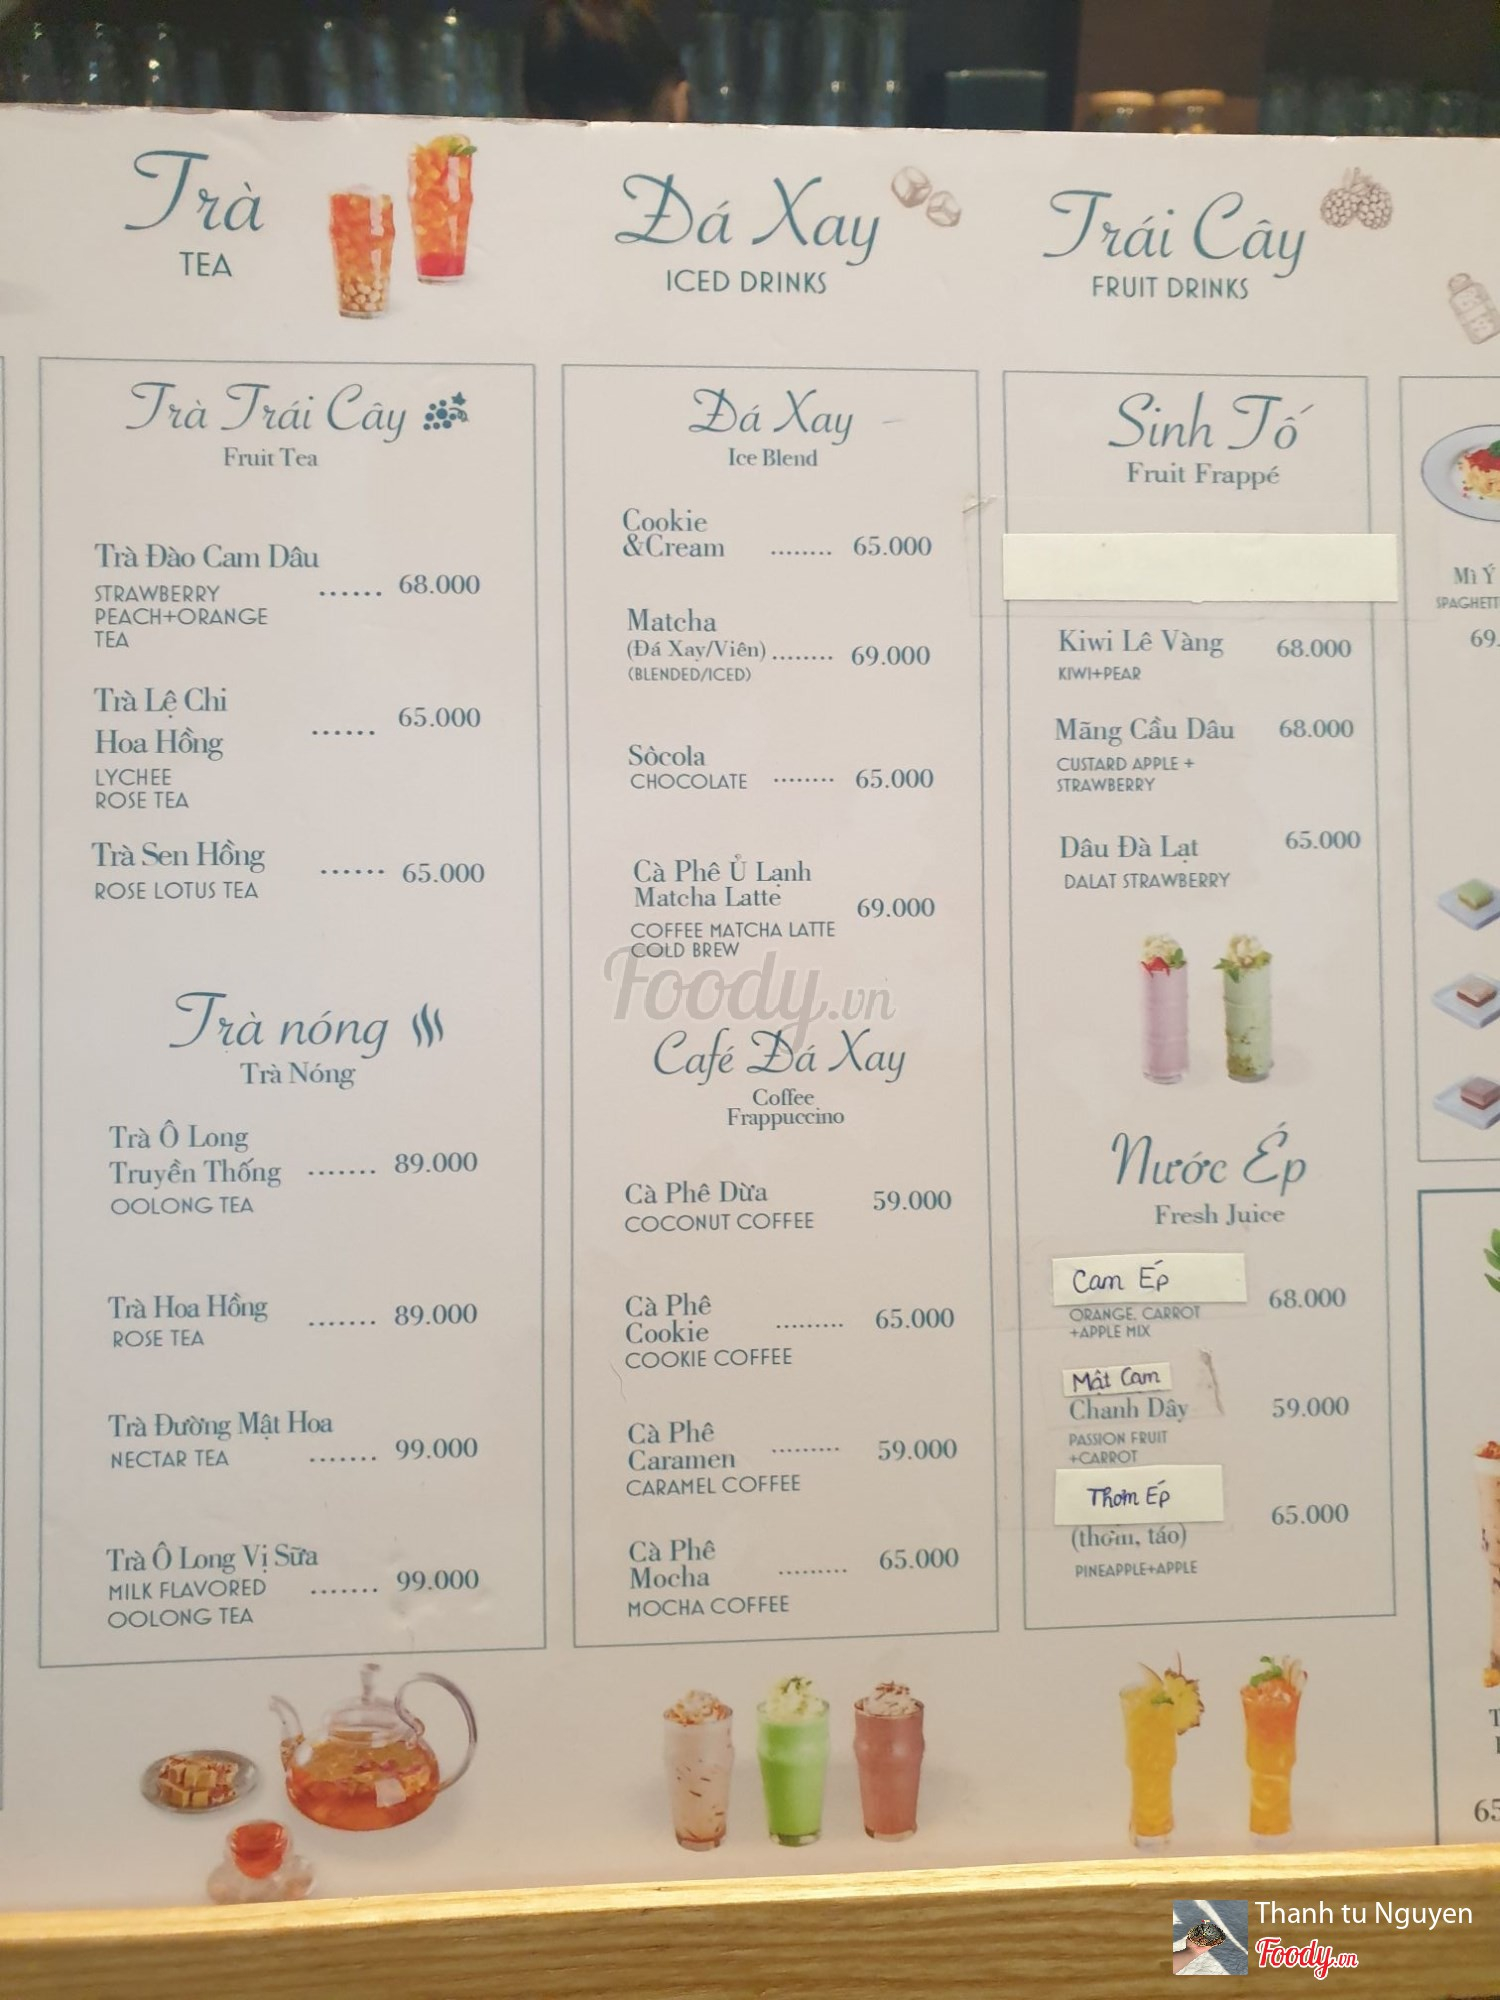 Trà
TEA
Trà Trái Cây
Fruit Tea
Trà Đào Cam Dâu
STRAWBERRY
PEACH+ORANGE
TEA
...... 68.000
Trà Lệ Chi
Hoa Hồng
...... 65.000
LYCHEE
ROSE TEA
Trà Sen Hồng
ROSE LOTUS TEA
...... 65.000
Trà nóng
Trà Nóng
Trà Ô Long
Truyền Thống ....... 89.000
OOLONG TEA
Trà Hoa Hồng
ROSE TEA
....... 89.000
Trà Đường Mật Hoa
NECTAR TEA ....... 99.000
Trà Ô Long Vị Sữa
MILK FLAVORED ....... 99.000
OOLONG TEA
Đá Xay
ICED DRINKS
Đá Xay
Ice Blend
Cookie
&Cream ........ 65.000
Matcha
(Đá Xay/Viên) ........ 69.000
(BLENDED/ICED)
Sôcola
CHOCOLATE ........ 65.000
Cà Phê Ủ Lạnh
Matcha Latte
69.000
COFFEE MATCHA LATTE
COLD BREW
Foody.vn
Café Đá Xay
Coffee
Frappuccino
Cà Phê Dừa
COCONUT COFFEE
59.000
Cà Phê
Cookie ......... 65.000
COOKIE COFFEE
Cà Phê
Caramen ......... 59.000
CARAMEL COFFEE
Cà Phê
Mocha ......... 65.000
MOCHA COFFEE
Trái Cây
FRUIT DRINKS
Sinh Tố
Fruit Frappé
Kiwi Lê Vàng 68.000
KIWI+PEAR
Mãng Cầu Dâu 68.000
CUSTARD APPLE +
STRAWBERRY
Dâu Đà Lạt 65.000
DALAT STRAWBERRY
Nước Ép
Fresh Juice
Cam Ép 68.000
ORANGE, CARROT
+APPLE MIX
Mật Cam
Chanh Dây 59.000
PASSION FRUIT
+CARROT
Thơm Ép 65.000
(thơm, táo)
PINEAPPLE+APPLE
Mì Ý
Thanh tu Nguyen
Foody.vn